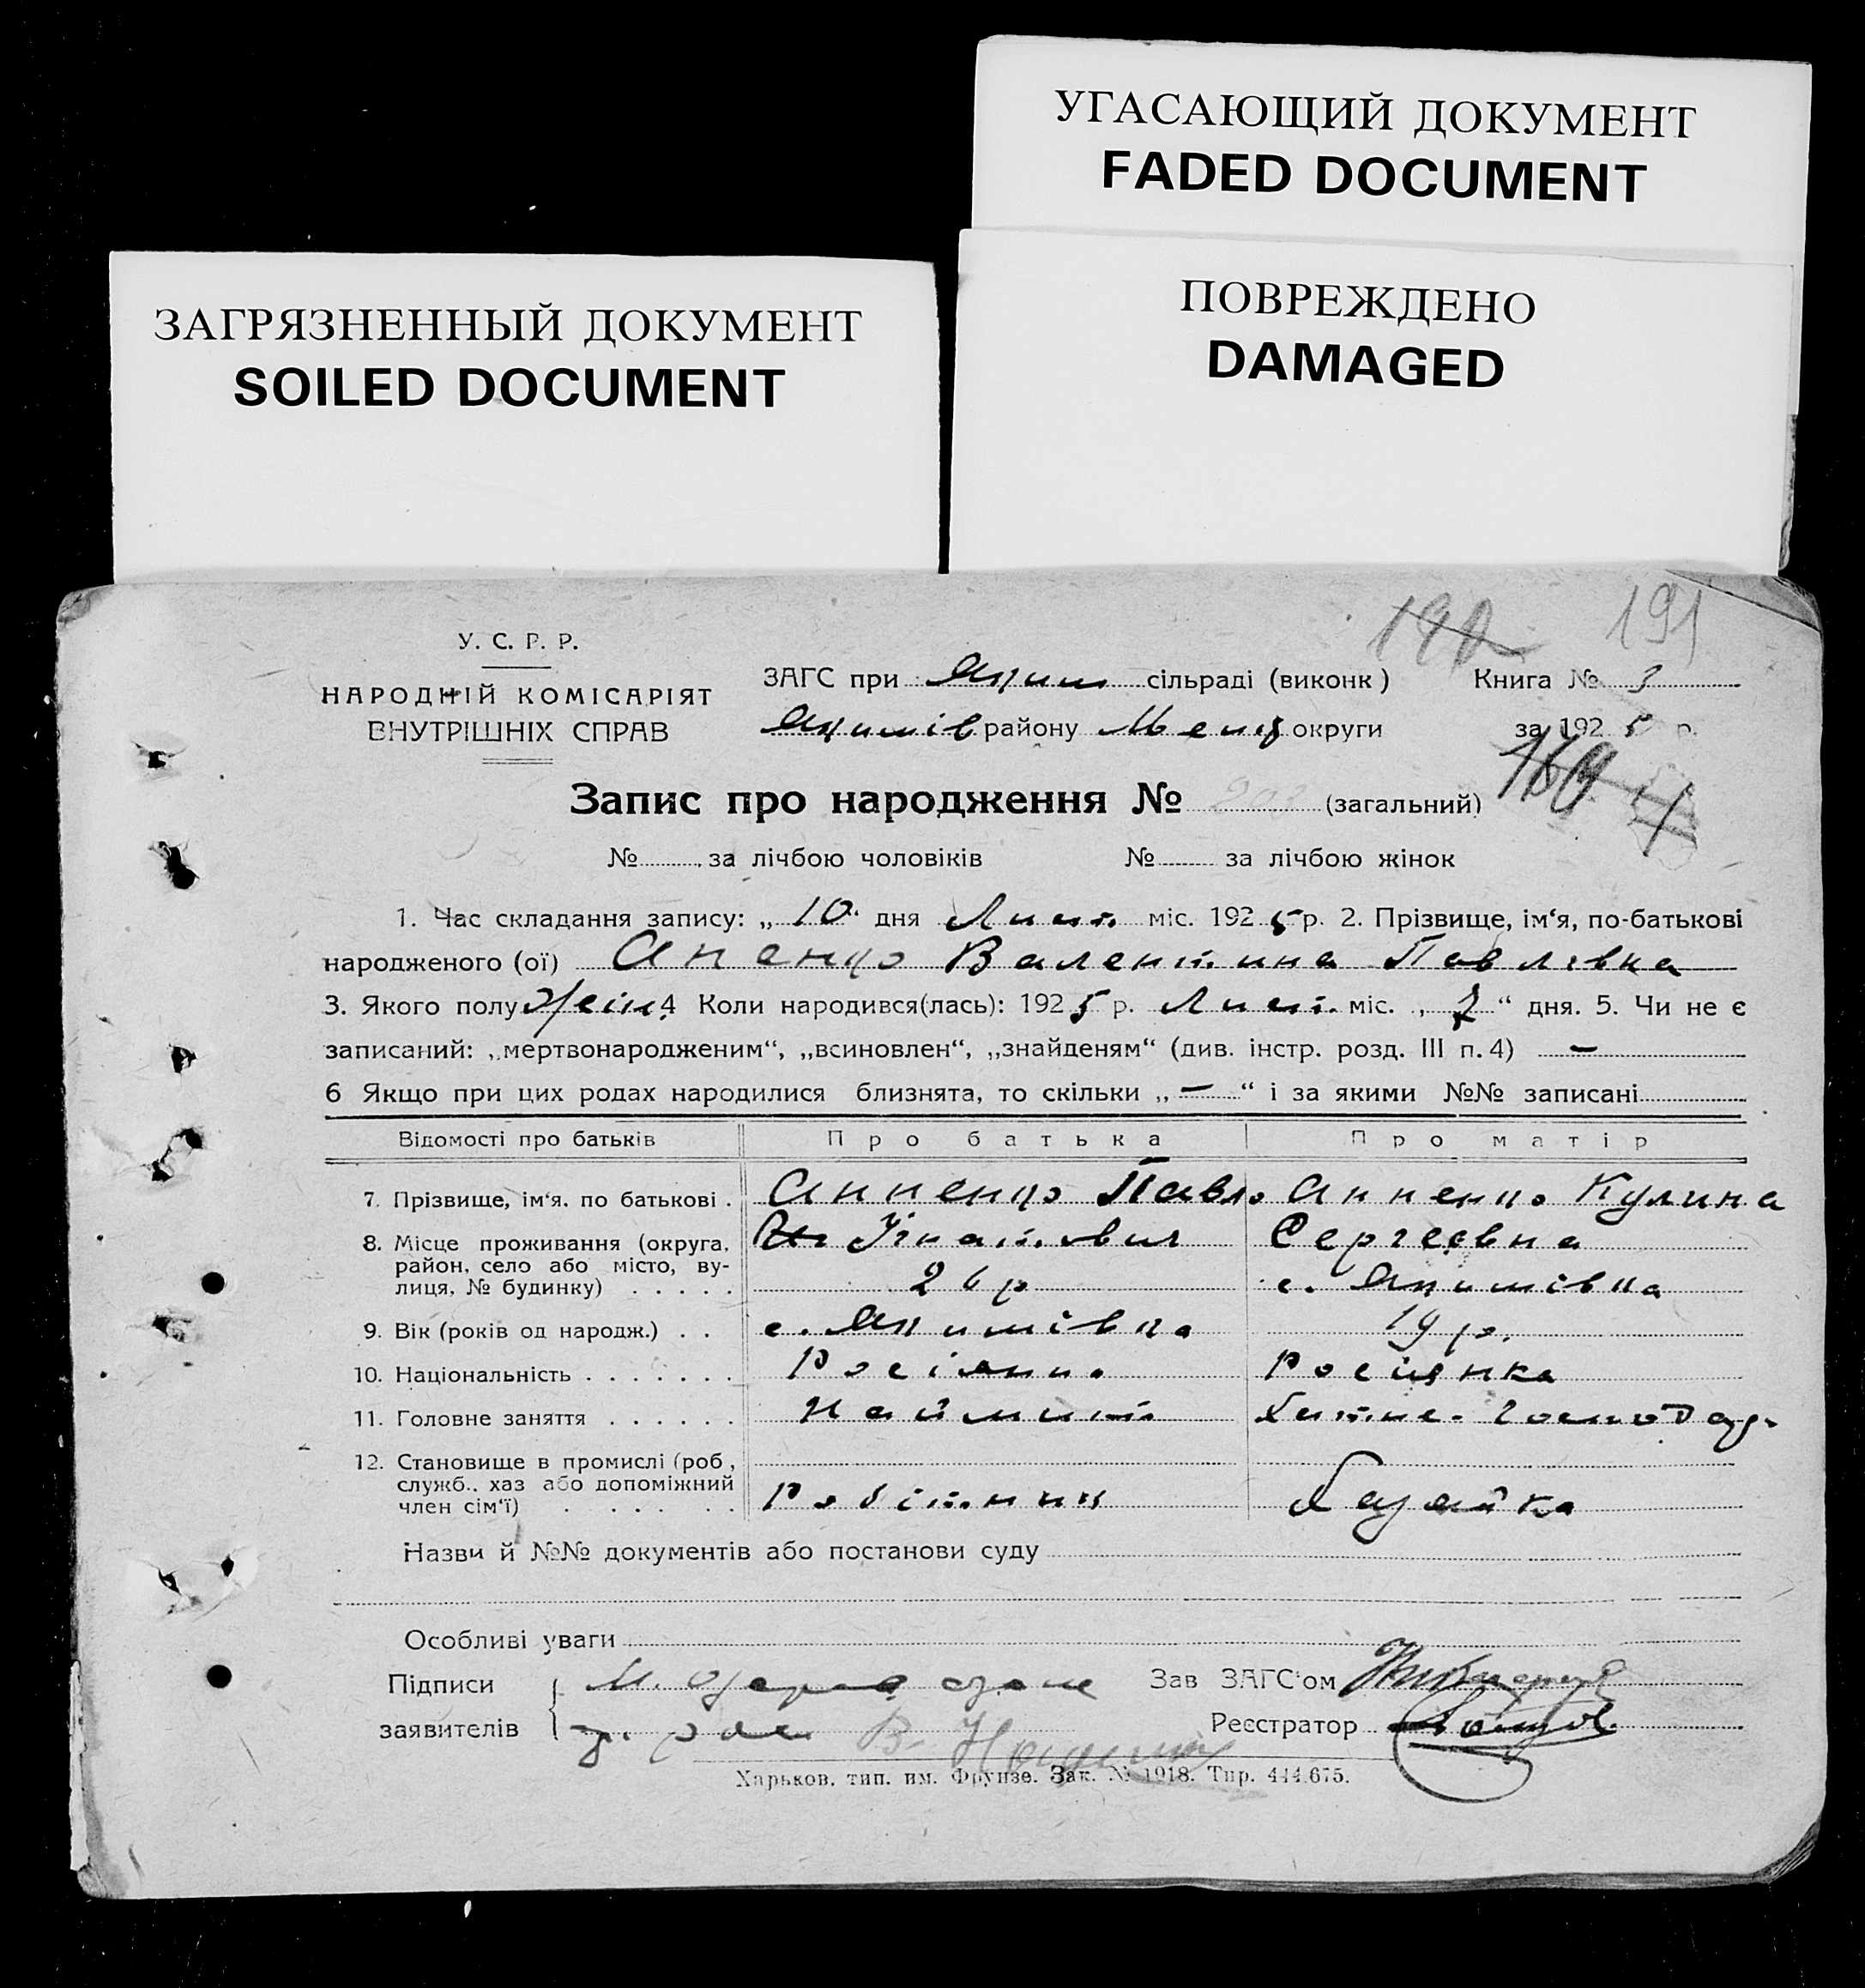 УГАСАЮЩИЙ ДОКУМЕНТ
FADED DOCUMENT
ПОВРЕЖДЕНО
DAMAGED
ЗАГРЯЗНЕННЫЙ ДОКУМЕНТ
SOILED DOCUMENT
191
У. С. Р. Р.
НАРОДНІЙ КОМІСАРІЯТ
ВНУТРІШНІХ СПРАВ
ЗАГС при Яким сільраді (виконк) Книга № 3
Якимів району Меліт округи за 1925 р.
169
Запис про народження № (загальний)
№ за лічбою чоловіків № за лічбою жінок
1. Час складання запису: „10“ дня Лист. міс. 1925 р. 2. Прізвище, ім‘я, по-батькові
народженого (ої) Апенко Валентина Павлівна
3. Якого полу жін. 4 Коли народився(лась): 1925 р. Лист. міс. „7“ дня. 5. Чи не є
записаний: „мертвонародженим“, „всиновлен“, „знайденям“ (див. інстр. розд. III п. 4) —
6 Якщо при цих родах народилися близнята, то скільки „—“ і за якими №№ записані
Відомості про батьків Про батька Про матір
7. Прізвище, ім‘я, по батькові . Аппенко Павло Аппенко Кулина
8. Місце проживання (округа, район, село або місто, вулиця, № будинку) . . . . . Ігнатович Сергеєвна
26 р с. Якимівка
9. Вік (років од народж.) . . с. Якимівка 19 р.
10. Національність . . . . . . . Росіянин Росіянка
11. Головне заняття . . . . . . наймит Хатнє господар.
12. Становище в промислі (роб., служб., хаз або допоміжний член сім‘ї) . . . . . . Робітник Хазяйка
Назви й №№ документів або постанови суду
Особливі уваги
Підписи Зав ЗАГС‘ом
заявителів Реєстратор
Харьков. тип. им. Фрунзе. Зак. № 1918. Тир. 444.675.